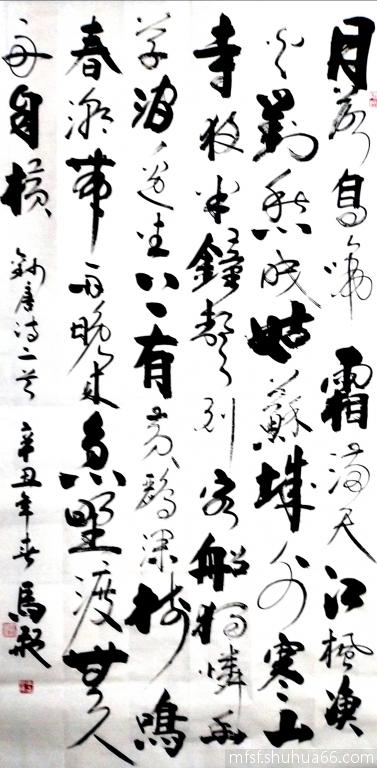 月落烏啼霜滿天江楓漁
火對愁眠姑蘇城外寒山
寺夜半鐘聲到客船獨憐幽
草澗邊生上有黃鸝深樹鳴
春潮帶雨晚來急野渡無人
舟自橫
錄唐詩二首 辛丑年春 馬
mfsf.shuhua66.com